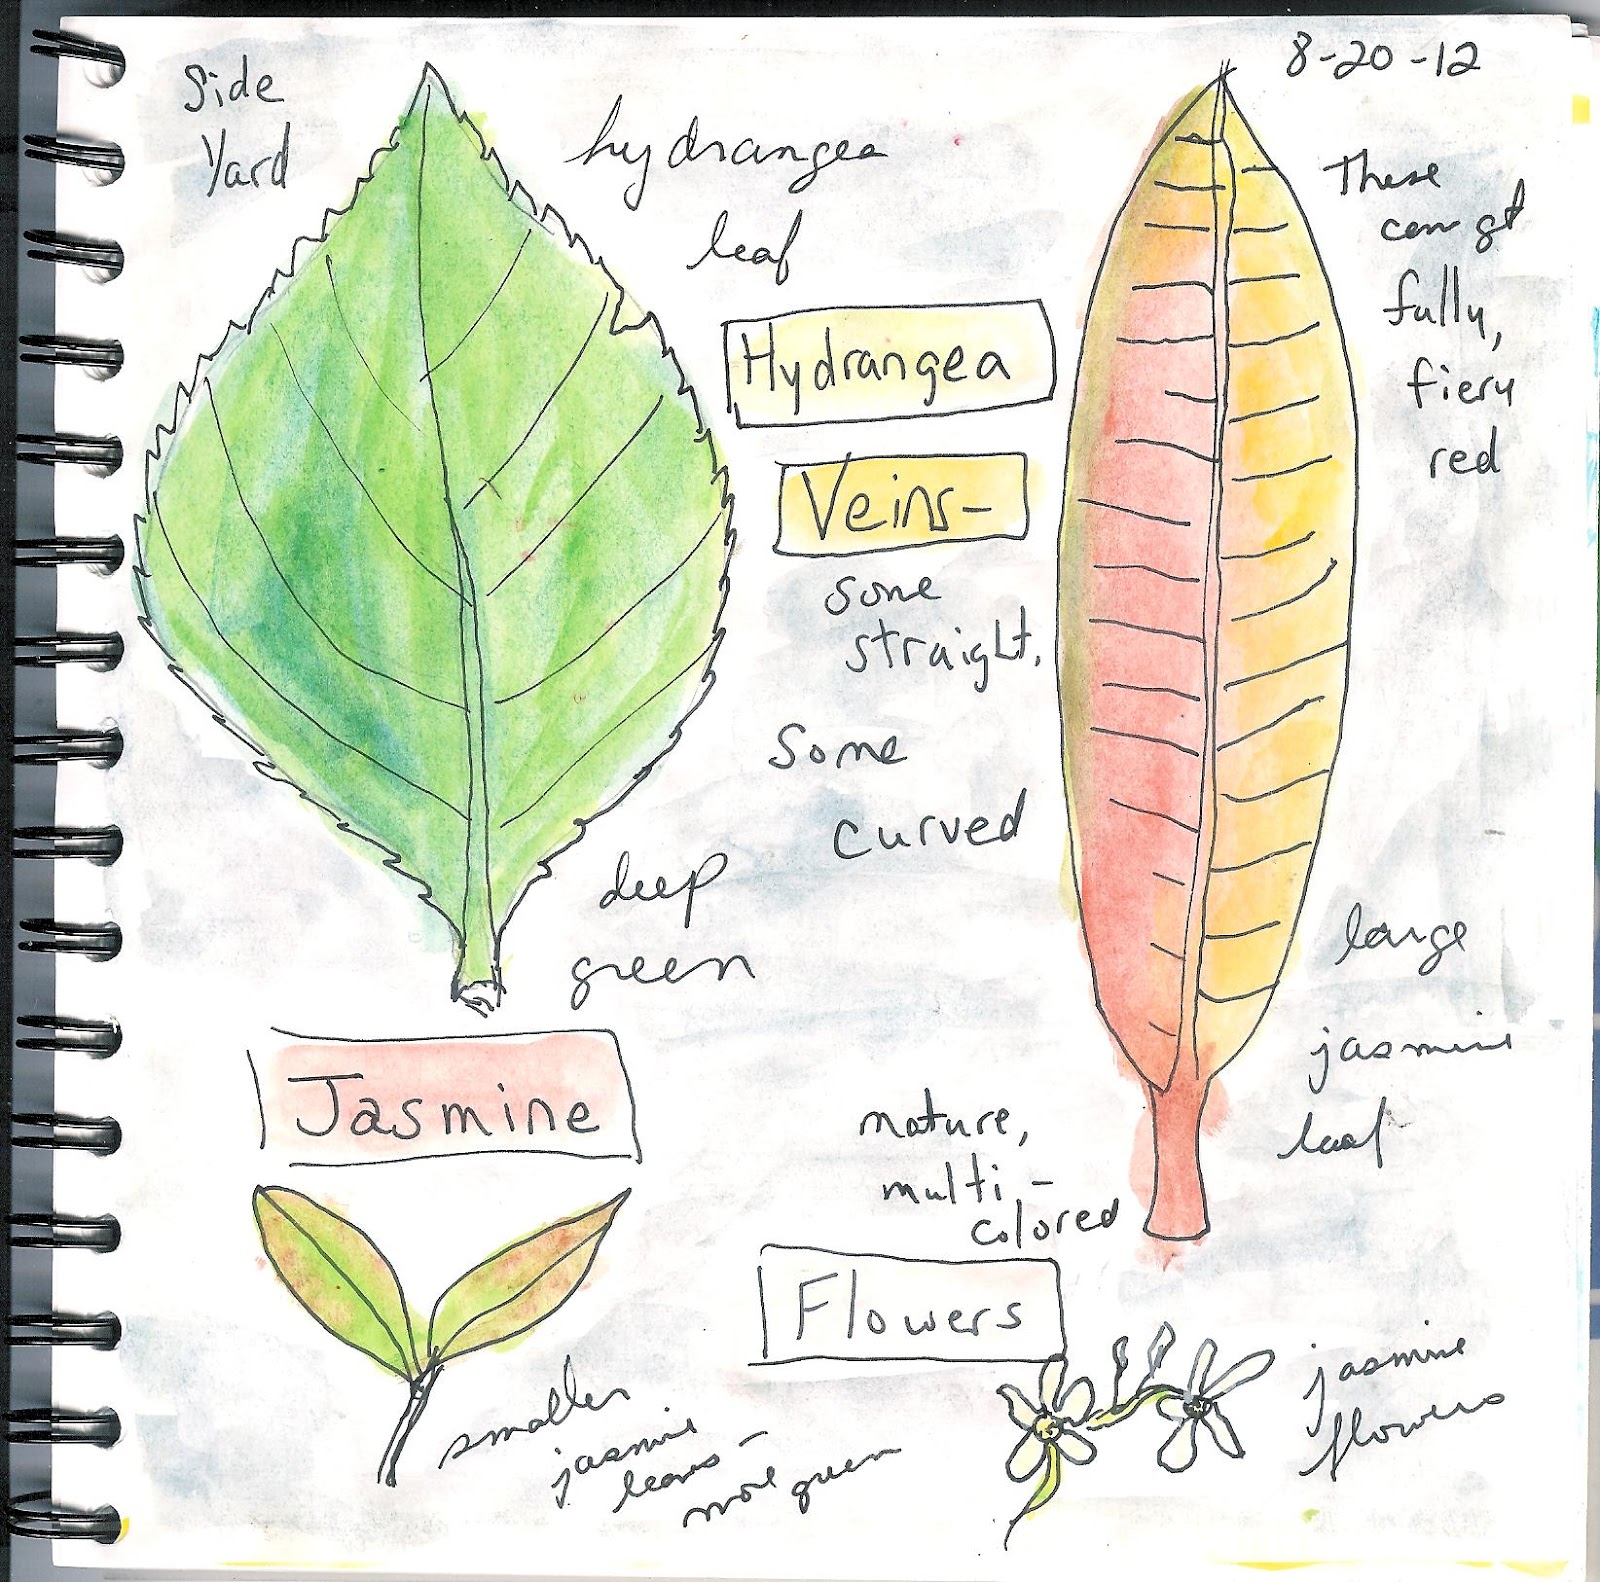 Side
Yard
hydrangea
leaf
8-20-12
These
can get
fully,
fiery
red
Hydrangea
Veins-
some
straight,
some
curved
deep
green
large
jasmine
leaf
Jasmine
mature,
multi-
colored
Flowers
smaller
jasmine
leaves -
more green
jasmine
flowers